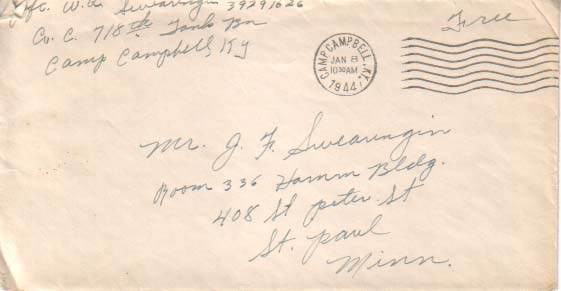 Pfc. W. A. Swearingin 39291626
Co. C. 718th Tank Bn
Camp Campbell, Ky
Free
CAMP CAMPBELL, KY.
JAN 8
10 30 AM
1944
Mr. J. F. Swearingin
Room 336 Hamm Bldg.
408 St peter St
St. paul
Minn.